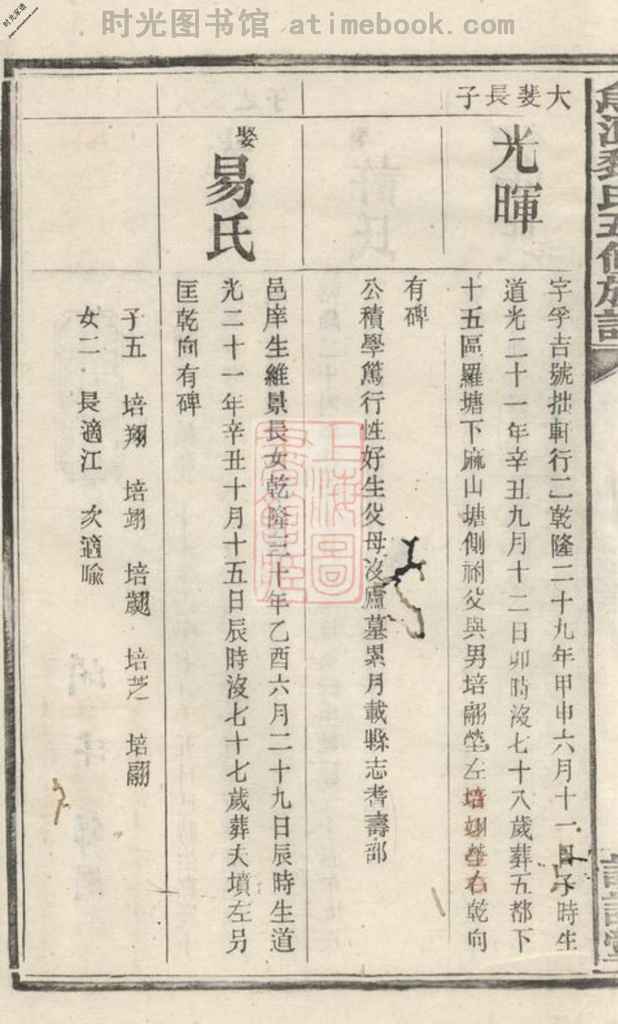 时光图书馆 atimebook.com
大斐長子
光暉
字孚吉號拙軒行二乾隆二十九年甲申六月十一日子時生
道光二十一年辛丑九月十二日卯時沒七十八歲葬五都下
十五區羅塘下麻山塘側祔父與男培翮塋左培翊塋右乾向
有碑
公積學篤行性好生父母沒廬墓累月載縣志耆壽部
娶易氏
邑庠生維景長女乾隆三十年乙酉六月二十九日辰時生道
光二十一年辛丑十月十五日辰時沒七十七歲葬大墳左另
匡乾向有碑
子五 培翔 培翊 培 培芝 培翮
女二 長適江 次適喻